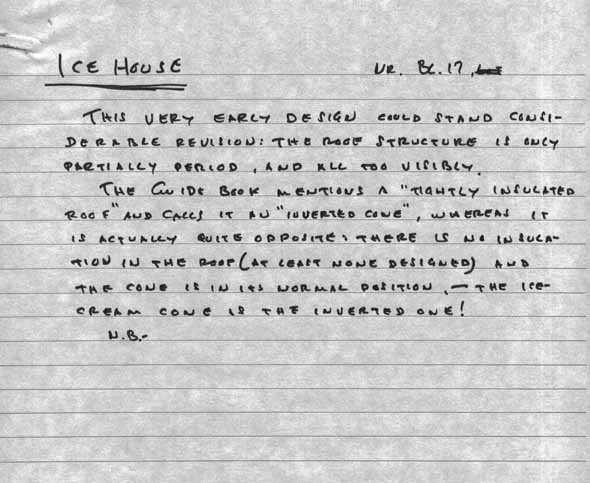 ICE HOUSE NR. BL. 17,
THIS VERY EARLY DESIGN COULD STAND CONSI-
DERABLE REVISION: THE ROOF STRUCTURE IS ONLY
PARTIALLY PERIOD, AND ALL TOO VISIBLY.
THE GUIDE BOOK MENTIONS A "TIGHTLY INSULATED
ROOF" AND CALLS IT AN "INVERTED CONE", WHEREAS IT
IS ACTUALLY QUITE OPPOSITE: THERE IS NO INSULA-
TION IN THE ROOF (AT LEAST NONE DESIGNED) AND
THE CONE IS IN ITS NORMAL POSITION, — THE ICE-
CREAM CONE IS THE INVERTED ONE!
N.B.-